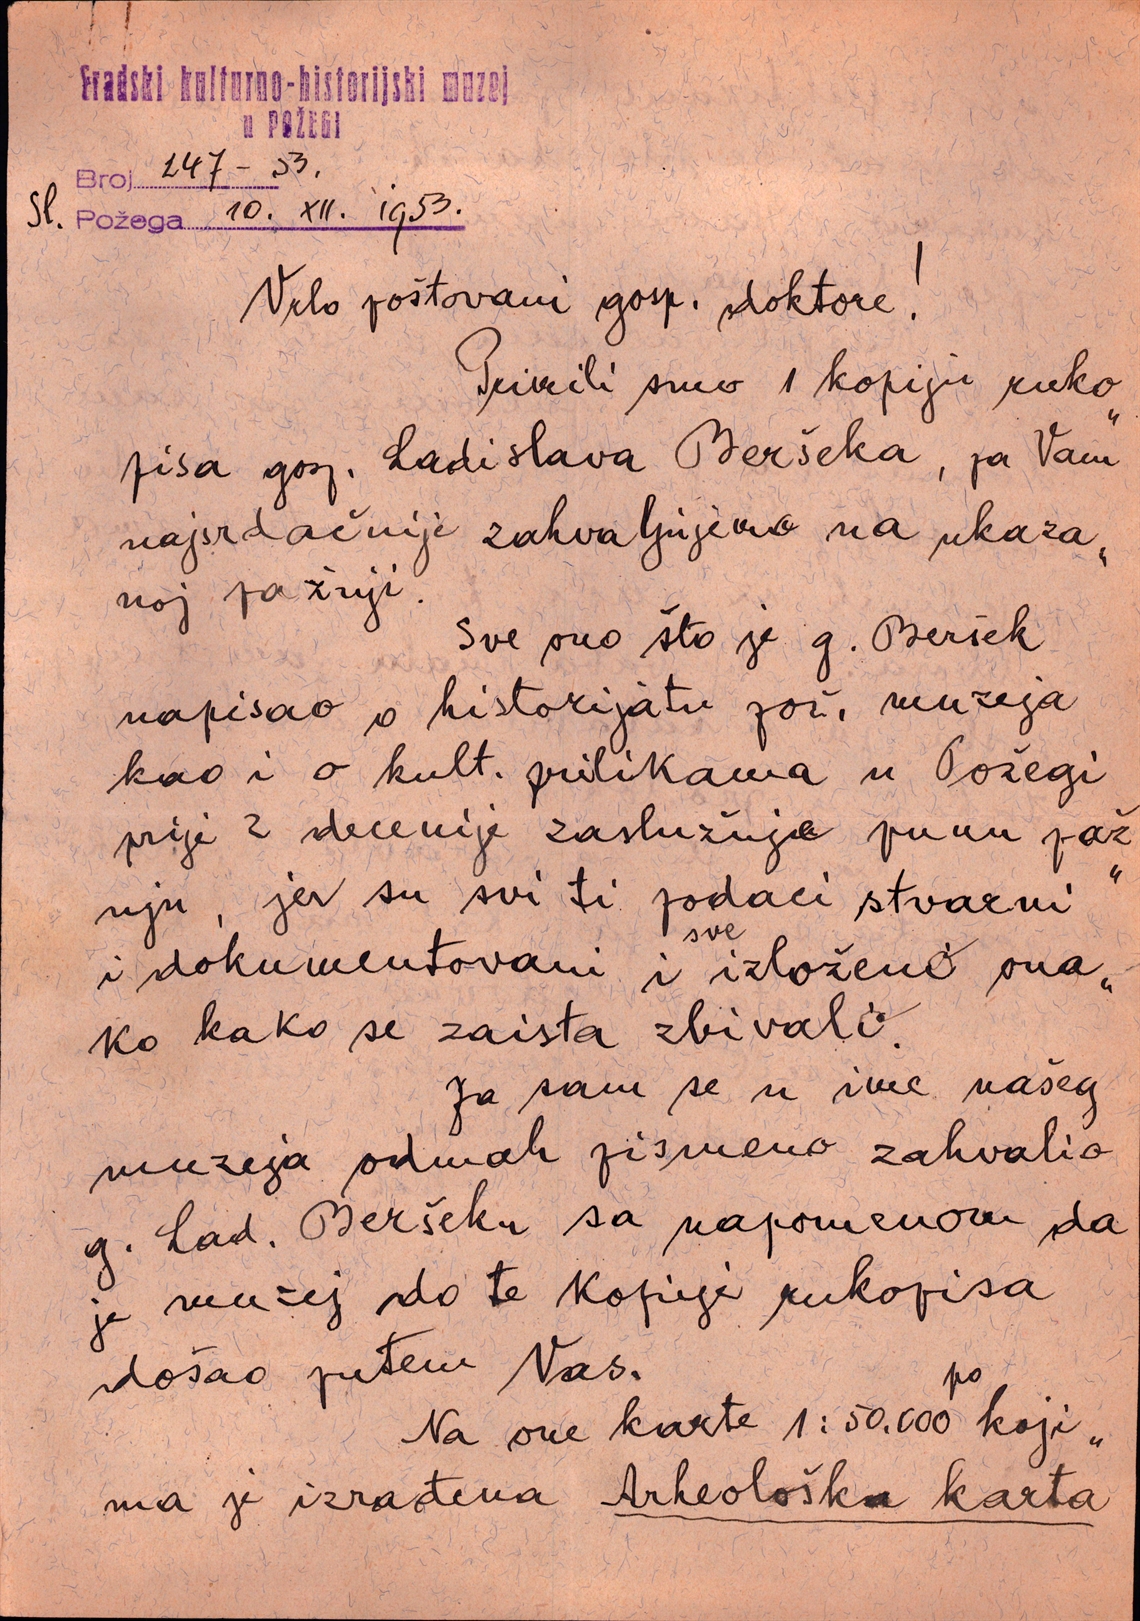 Gradski kulturno-historijski muzej
u POŽEGI
Broj 247 - 53.
Sl. Požega 10. XII. 1953.
Vrlo poštovani gosp. doktore!
Primili smo 1 kopiju ruko„
pisa gosp. Ladislava Beršeka, pa Vam
najsrdačnije zahvaljujemo na ukaza„
noj pažnji.
Sve ono što je g. Beršek
napisao o historijatu pož. muzeja
kao i o kult. prilikama u Požegi
prije 2 decenije zaslužuje punu paž„
nju, jer su svi ti podaci stvarni
i dokumentovani i sve izloženo ona„
ko kako se zaista zbivalo.
Ja sam se u ime našeg
muzeja odmah pismeno zahvalio
g. Lad. Beršeku sa napomenom da
je muzej do te kopije rukopisa
došao putem Vas.
Na one karte 1:50.000 po koji„
ma je izrađena Arheološka karta